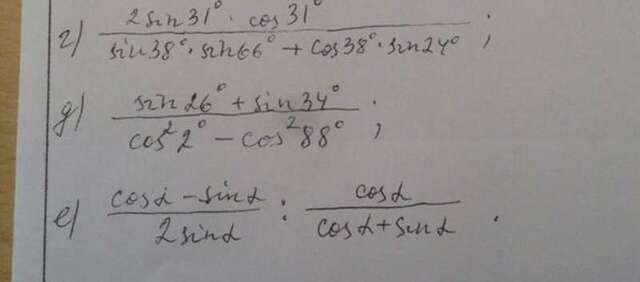 г) 2 sin 31° · cos 31° / sin 38° · sin 66° + cos 38° · sin 24° ;
д) sin 26° + sin 34° / cos² 2° - cos² 88° ;
е) cos α - sin α / 2 sin α : cos α / cos α + sin α .